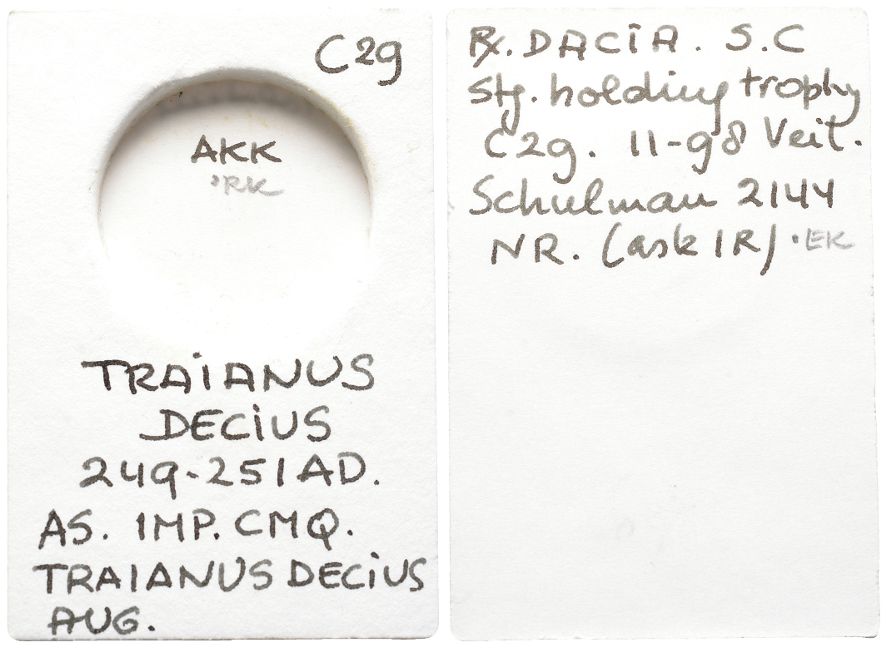 C29
AKK
·RK
TRAIANUS
DECIUS
249-251 AD.
AS. IMP. CMQ.
TRAIANUS DECIUS
AUG.
Rx. DACIA. S.C
Stg. holding trophy
C29. 11-98 Veil.
Schulman 2144
NR. (ask IR) ·EK